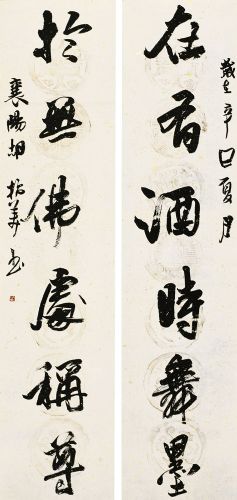 歲在辛巳夏月
在有酒時舞墨
於無佛處稱尊
襄陽胡振華書